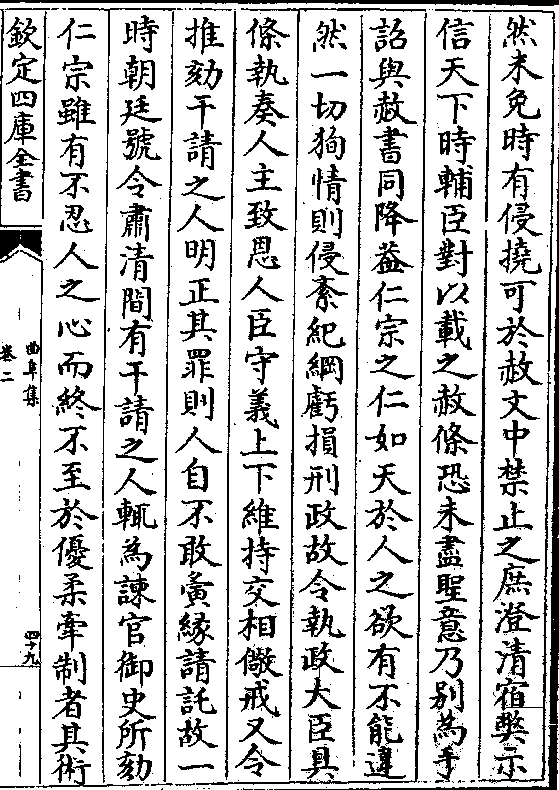 然未免時有侵撓可於赦文中禁止之庶澄清宿弊示
信天下時輔臣對以載之赦條恐未盡聖意乃别為手
詔與赦書同降葢仁宗之仁如天於人之欲有不能違
然一切狥情則侵紊紀綱虧損刑政故令執政大臣具
條執奏人主致恩人臣守義上下維持交相儆戒又令
推劾干請之人明正其罪則人自不敢夤緣請託故一
時朝廷號令肅清間有干請之人輒為諫官御史所劾
仁宗雖有不忍人之心而終不至於優柔牽制者其術
欽定四庫全書
曲阜集
卷二
四十九